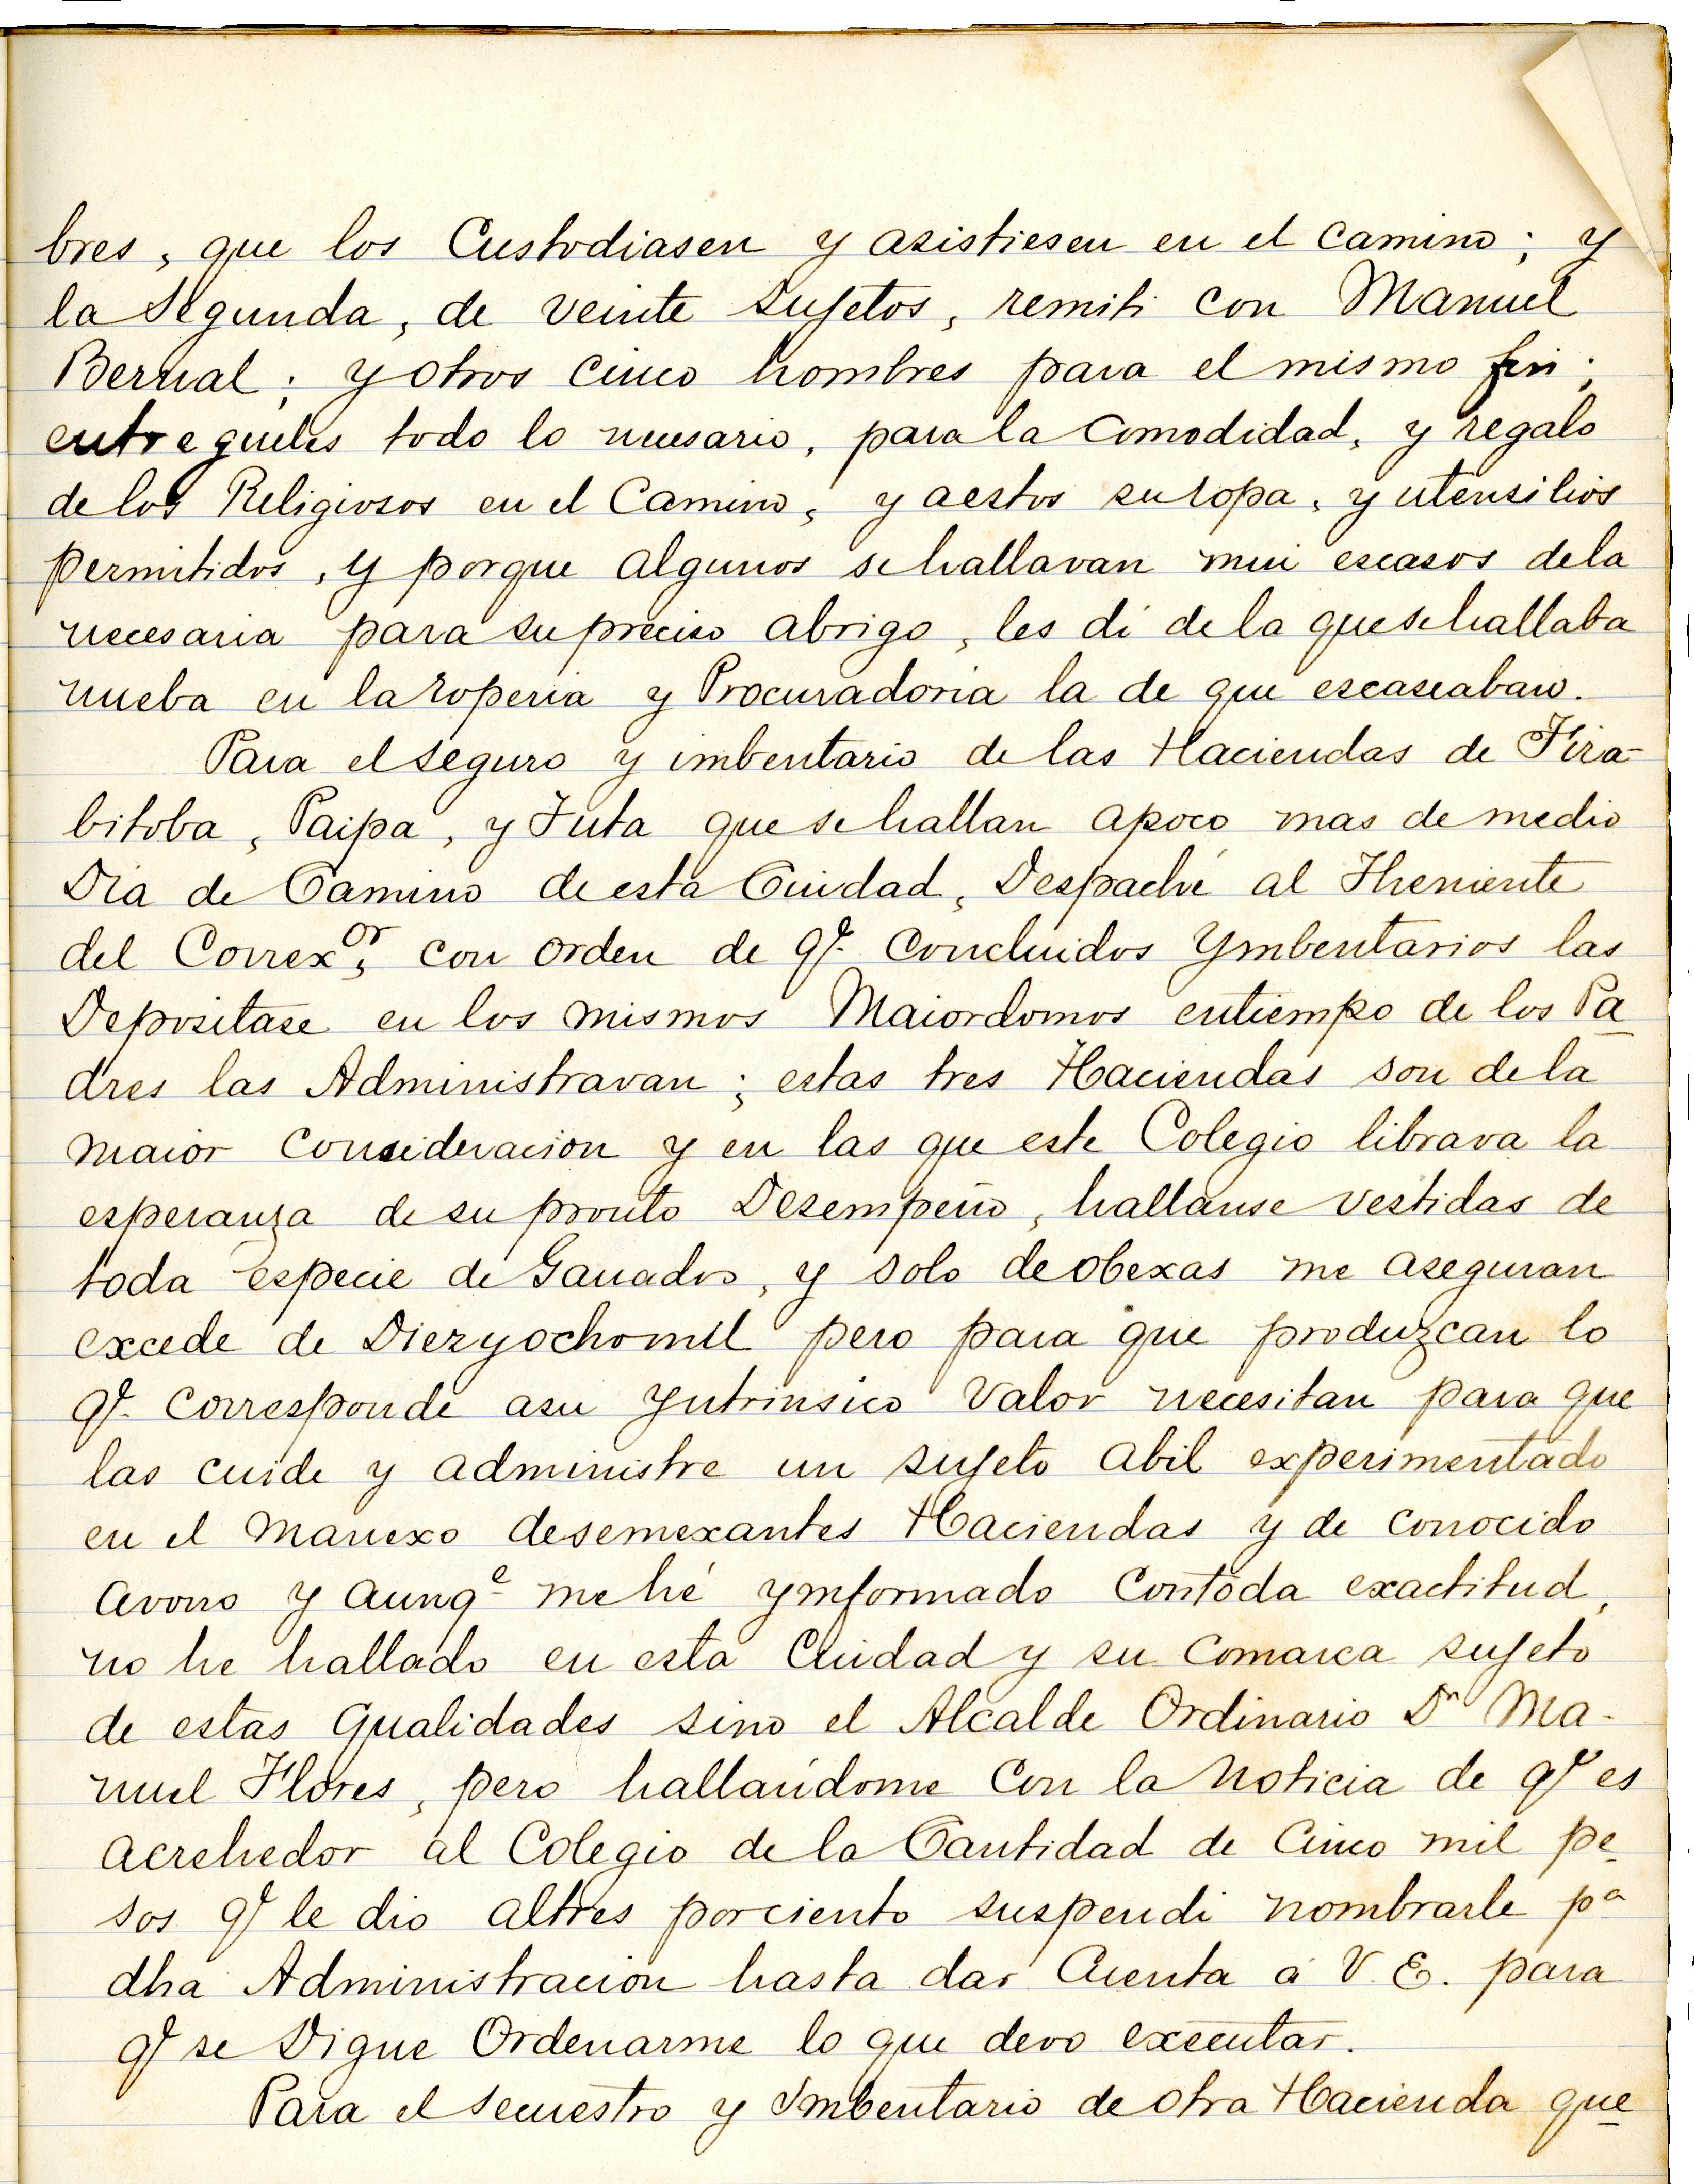 bres, que los Custodiasen y asistiesen en el camino; y
la Segunda, de veinte sujetos, remiti con Manuel
Bernal; y otros cinco hombres para el mismo fin;
entregueles todo lo nesesario, para la Comodidad, y regalo
de los Religiosos en el Camino, y aestos su ropa, y utensilios
permitidos, y porque algunos se hallavan mui escasos dela
necesaria para su preciso abrigo, les di de la que se hallaba
nueba en la roperia y Procuradoria la de que escaseaban.
Para el seguro y imbentario de las Haciendas de Fira-
bitoba, Paipa, y Tuta que se hallan apoco mas de medio
Dia de Camino de esta Ciudad, Despaché al Theniente
del Correxor, con orden de q.e Concluidos Ymbentarios las
Depositase en los mismos Maiordomos entiempo de los Pa
dres las Administravan; estas tres Haciendas son de la
maior Concideracion y en las que este Colegio librava la
esperanza de su pronto Desempeño, hallanse vestidas de
toda especie de Ganados, y solo de obexas me aseguran
excede de Diezyochomil pero para que produzcan lo
q.e corresponde asu Yntrinsico Valor necesitan para que
las cuide y administre un sujeto abil experimentado
en el Manexo desemexantes Haciendas y de conocido
avono y aunq.e me hé ymformado Contoda exactitud,
no he hallado en esta Ciudad y su Comarca sujeto
de estas qualidades sino el Alcalde Ordinario Dn Ma-
nuel Flores, pero hallandome Con la noticia de q.e es
acrehedor al Colegio de la Cantidad de Cinco mil pe
sos q.e le dio altres porciento suspendi nombrarle pa
dha Administracion hasta dar Cuenta á V. E. para
q.e se Digne Ordenarme lo que devo executar.
Para el secuestro y Imbentario de otra Hacienda que